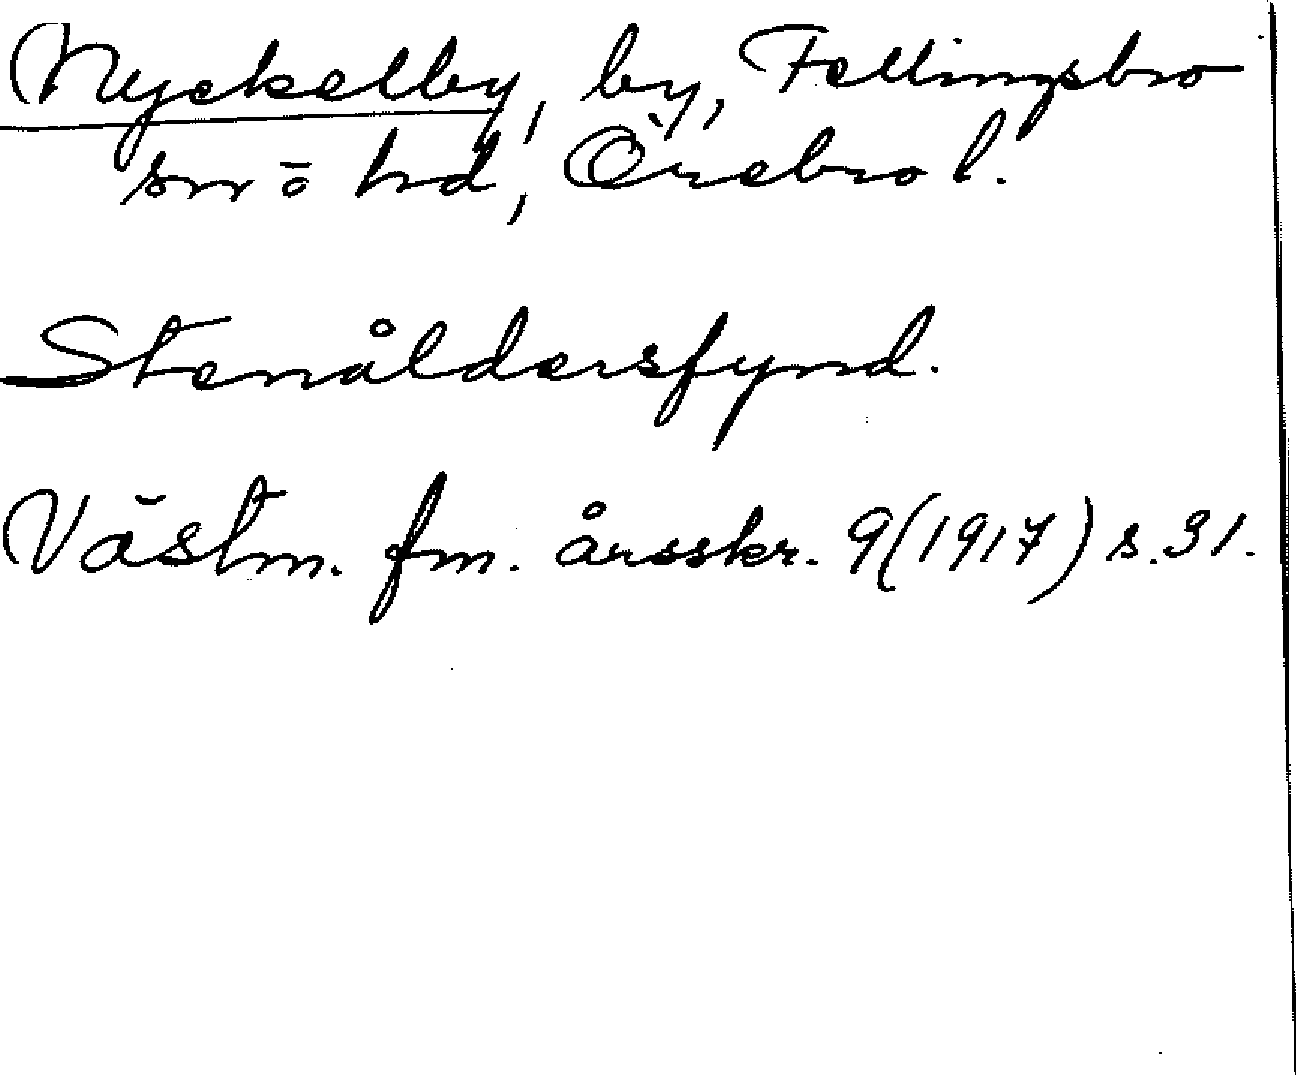 Nyckelby, by, Fellingsbro
sn ö hd, Örebro l.
Stenåldersfynd.
Västm. fm. årsskr. 9(1917) s. 31.